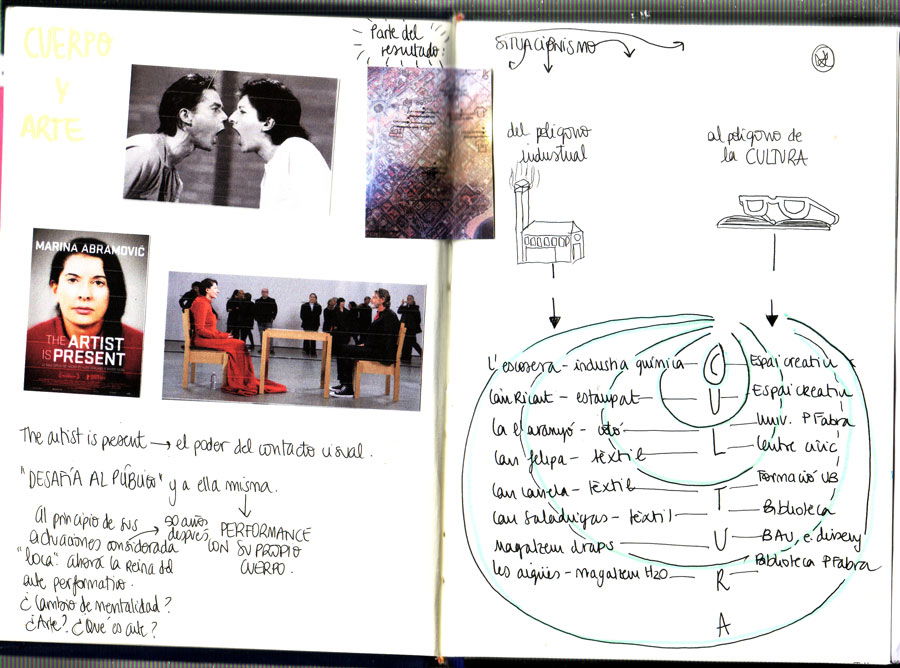 CUERPO
Y
ARTE
Parte del
resultado
MARINA ABRAMOVIĆ
THE ARTIST
IS PRESENT
The artist is present → el poder del contacto visual.
"DESAFÍA AL PÚBLICO" y a ella misma.
PERFORMANCE
CON SU PROPIO
CUERPO.
Al principio de sus
actuaciones considerada
"loca" ahora la reina del
arte performativo.
50 años
después
¿Cambio de mentalidad?
¿Arte? ¿Qué es arte?
SITUACIONISMO
del polígono
industrial
al polígono de
la CULTURA
L'escocesa - industria química C Espai creatiu
Can Ricart - estampat U Espai creatiu
Ca l'aranyó - cotó L Univ. P Fabra
Can felipa - tèxtil Centre cívic
Can Canela - tèxtil T Formació UB
Can Saladrigas - tèxtil Biblioteca
Magatzem draps U BAU, e. disseny
Les aigües - magatzem H2O R Biblioteca P Fabra
A